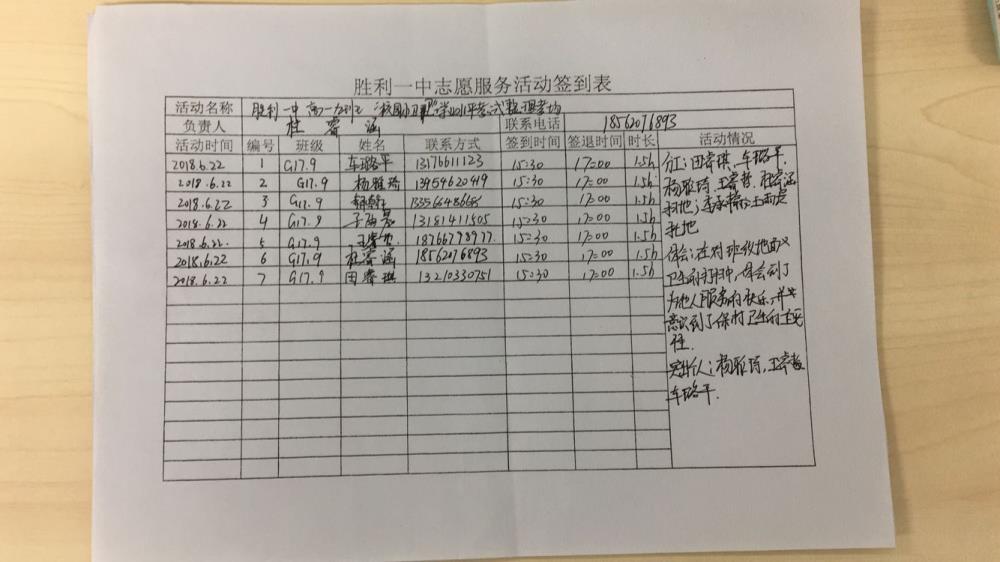 胜利一中志愿服务活动签到表
活动名称 胜利一中 高一九班 学业水平考试整理考场
负责人 桂睿涵 联系电话 18562076893
活动时间 编号 班级 姓名 联系方式 签到时间 签退时间 时长 活动情况
2018.6.22 1 G17.9 车璐平 13176611123 15:30 17:00 1.5h
2018.6.22 2 G17.9 杨雅琦 13954620419 15:30 17:00 1.5h
2018.6.22 3 G17.9 13356648668 15:30 17:00 1.5h
2018.6.22 4 G17.9 13181411505 15:30 17:00 1.5h
2018.6.22. 5 G17.9 王睿哲 18766778977. 15:30 17:00 1.5h
2018.6.22 6 G17.9 桂睿涵 18562076893 15:30 17:00 1.5h
2018.6.22 7 G17.9 田睿琪 13210330751 15:30 17:00 1.5h
分工:田睿琪、车璐平、
杨雅琦、王睿哲、桂睿涵
扫地;
拖地
体会:在对班级地面
卫生的打扫中,体会到了
为他人服务的快乐,并
意识到了保持卫生的重要
性.
撰稿人:杨雅琦,王睿哲
车璐平.